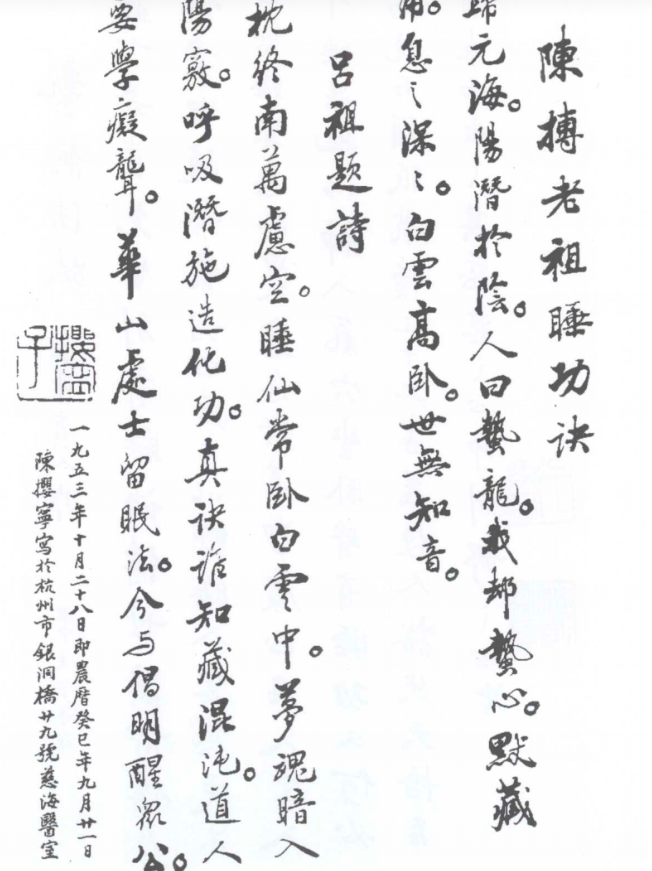 陳摶老祖睡功訣
歸元海。陽潛於陰。人曰蟄龍。我却蟄心。默藏
用。息之深〻。白雲高卧。世無知音。
呂祖題詩
枕終南萬慮空。睡仙常卧白雲中。夢魂暗入
陽竅。呼吸潛施造化功。真訣誰知藏混沌。道人
要學癡聾。華山處士留眠法。今与倡明醒眾公。
一九五三年十月二十八日即農曆癸巳年九月廿一日
陳攖寧寫於杭州市銀洞橋廿九號慈海醫室
攖寧子